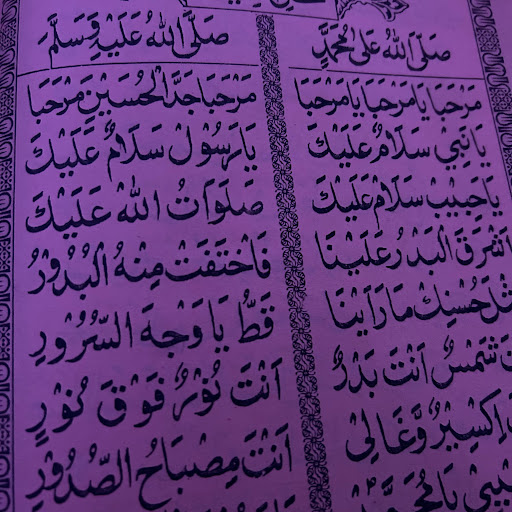 صَلَى اللهُ عَلٰى مُحَمَّدٍ صَلَّى اللهُ عَلَيْهِ وَسَلَّمَ
مَرْحَبَا يَا مَرْحَبَا يَا مَرْحَبَا مَرْحَبَا جَدَّ الْحُسَيْنِ مَرْحَبَا
يَا نَبِيْ سَلَامٌ عَلَيْكَ يَا رَسُوْلْ سَلَامٌ عَلَيْكَ
يَا حَبِيْبْ سَلَامْ عَلَيْكَ صَلَوَاتُ اللهْ عَلَيْكَ
اَشْرَقَ الْبَدْرُ عَلَيْنَا فَاخْتَفَتْ مِنْهُ الْبُدُوْرُ
حُسْنِكْ مَا رَاَيْنَا قَطُّ يَا وَجْهَ السُّرُوْرِ
شَمْسٌ اَنْتَ بَدْرٌ اَنْتَ نُوْرٌ فَوْقَ نُوْرٍ
اِكْسِيْرٌ وَّغَالِيْ اَنْتَ مِصْبَاحُ الصُّدُوْرِ
يَا مُحَمَّدْ